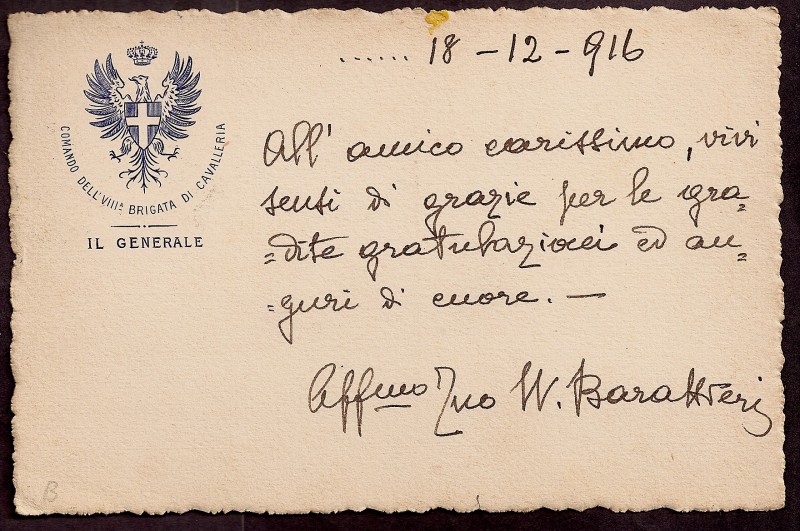 ...... 18 - 12 - 916
COMANDO DELL'VIIIª BRIGATA DI CAVALLERIA
IL GENERALE
All' amico carissimo, vivi
sensi di grazie per le gra=
=dite gratulazioni ed au=
=guri di cuore. —
Affmo Tuo W. Barattieri
B